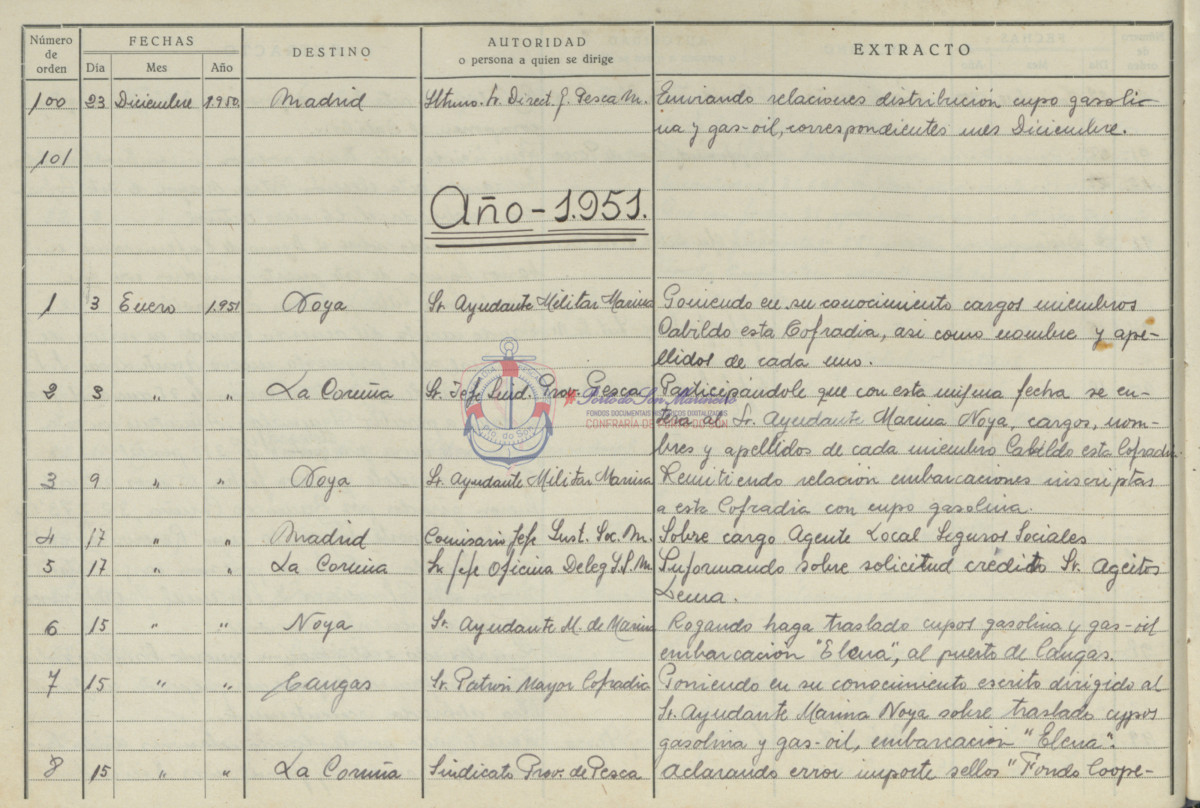 Número de orden
FECHAS
Día Mes Año
DESTINO
AUTORIDAD
o persona a quien se dirige
EXTRACTO
100 23 Diciembre 1.950 Madrid Iltmo. Sr. Direct. J. Pesca M. Enviando relaciones distribución cupo gasoli-
na y gas-oil, correspondientes mes Diciembre.
101
Año - 1.951.
1 3 Enero 1.951 Noya Sr. Ayudante Militar Marina Poniendo en su conocimiento cargos miembros
Cabildo esta Cofradia, asi como nombre y ape-
llidos de cada uno.
2 3 " " La Coruña Sr. Jefe Sind. Prov. Pesca Participándole que con esta misma fecha se en-
tera al Sr. Ayudante Marina Noya, cargos, nom-
bres y apellidos de cada miembro Cabildo esta Cofradia
Porto do Son Mariñeiro
FONDOS DOCUMENTAIS HISTÓRICOS DIXITALIZADOS
CONFRARÍA DE PORTO DO SON
Pto. do Son
3 9 " " Noya Sr. Ayudante Militar Marina Remitiendo relación embarcaciones inscriptas
a esta Cofradia con cupo gasolina.
4 17 " " Madrid Comisario Jefe Inst. Soc. M. Sobre cargo Agente Local Seguros Sociales
5 17 " " La Coruña Sr. Jefe Oficina Deleg I.S.M Informando sobre solicitud crédito Sr. Ageitos
Lema.
6 15 " " Noya Sr. Ayudante M. de Marina Rogando haga traslado cupos gasolina y gas-oil
embarcación "Elena", al puerto de Cangas.
7 15 " " Cangas Sr. Patrón Mayor Cofradia Poniendo en su conocimiento escrito dirigido al
Sr. Ayudante Marina Noya sobre traslado cupos
gasolina y gas-oil, embarcación "Elena".
8 15 " " La Coruña Sindicato Prov. de Pesca Aclarando error importe sellos "Fondo Coope-